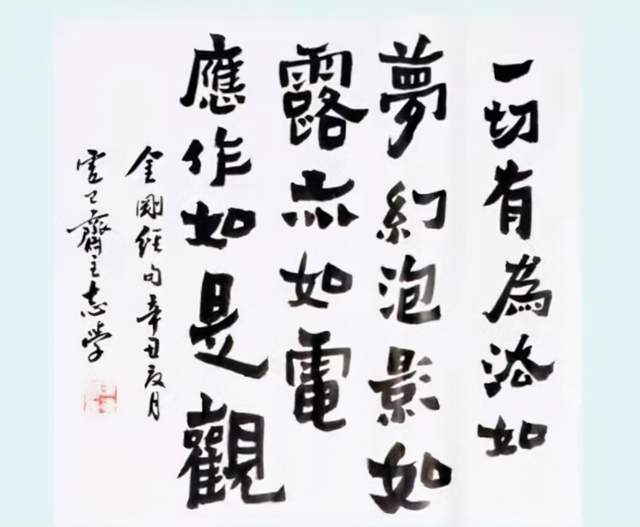 一切有為法如
夢幻泡影如
露亦如電
應作如是觀
金剛經句辛丑夏月
雲卫齋主志学